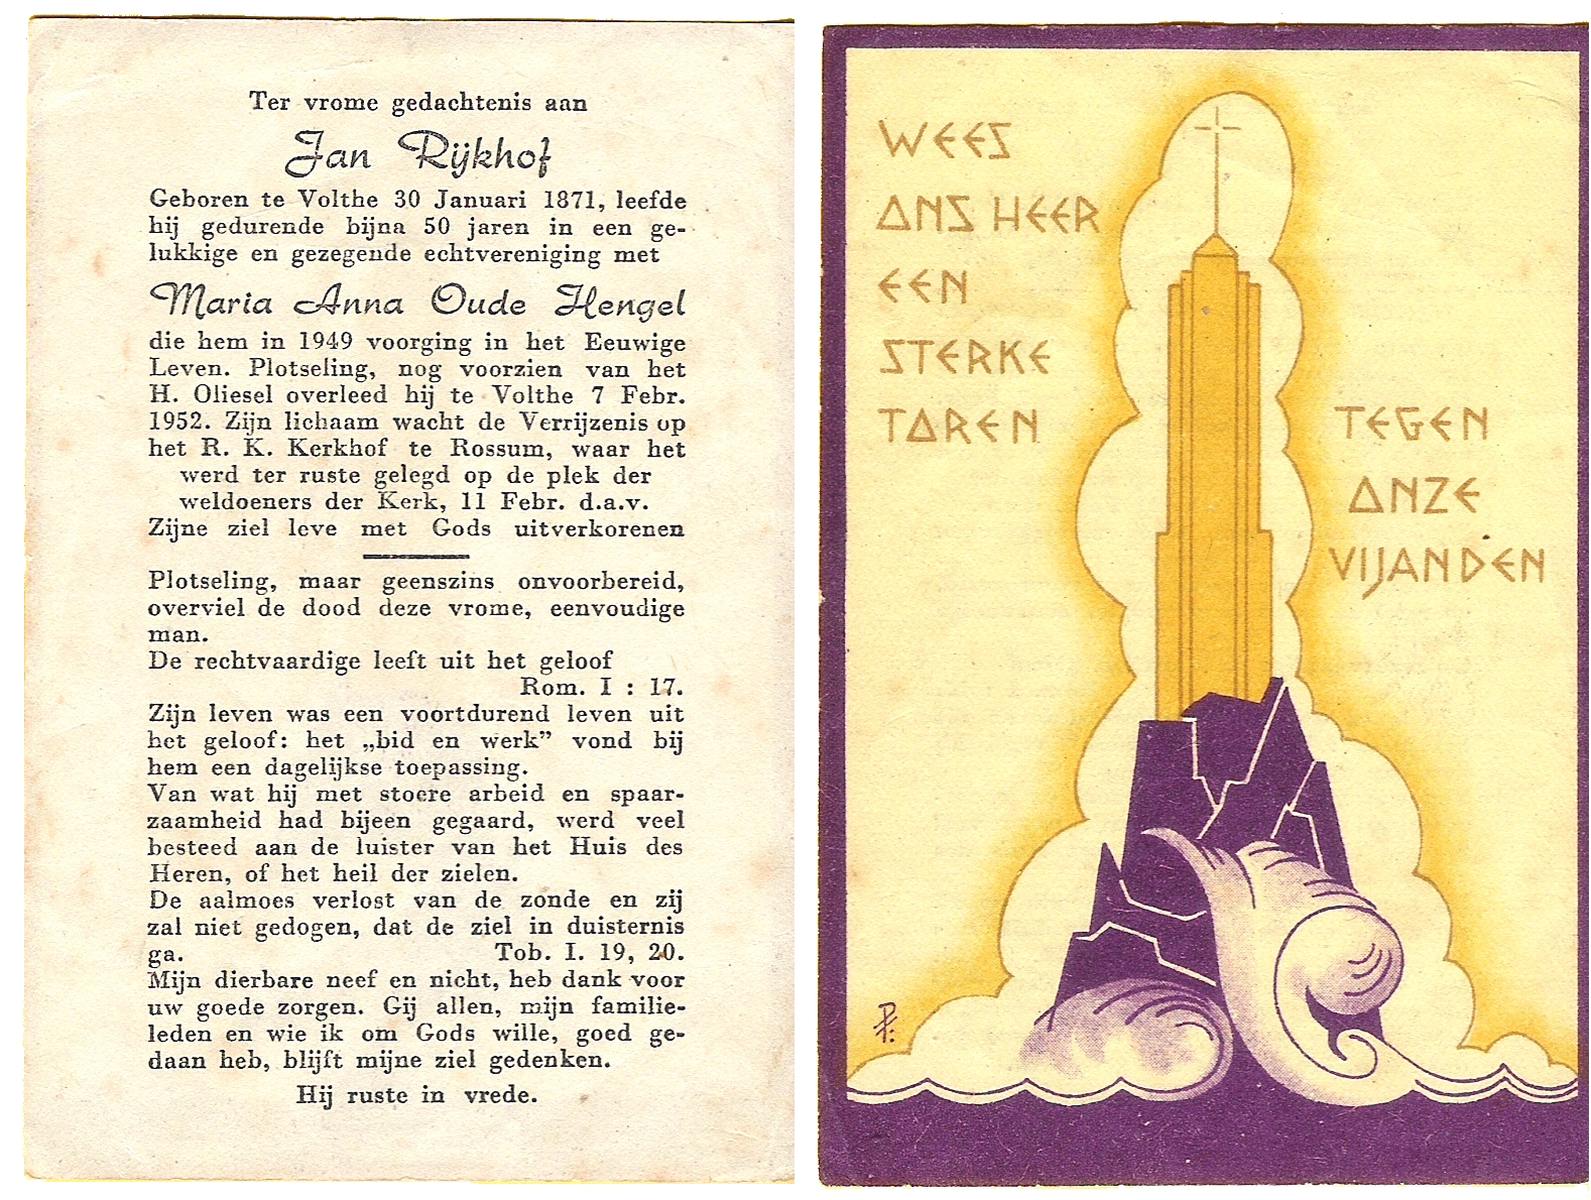 Ter vrome gedachtenis aan
Jan Rijkhof
Geboren te Volthe 30 Januari 1871, leefde
hij gedurende bijna 50 jaren in een ge-
lukkige en gezegende echtvereniging met
Maria Anna Oude Hengel
die hem in 1949 voorging in het Eeuwige
Leven. Plotseling, nog voorzien van het
H. Oliesel overleed hij te Volthe 7 Febr.
1952. Zijn lichaam wacht de Verrijzenis op
het R. K. Kerkhof te Rossum, waar het
werd ter ruste gelegd op de plek der
weldoeners der Kerk, 11 Febr. d.a.v.
Zijne ziel leve met Gods uitverkorenen
Plotseling, maar geenszins onvoorbereid,
overviel de dood deze vrome, eenvoudige
man.
De rechtvaardige leeft uit het geloof
Rom. I : 17.
Zijn leven was een voortdurend leven uit
het geloof: het „bid en werk” vond bij
hem een dagelijkse toepassing.
Van wat hij met stoere arbeid en spaar-
zaamheid had bijeen gegaard, werd veel
besteed aan de luister van het Huis des
Heren, of het heil der zielen.
De aalmoes verlost van de zonde en zij
zal niet gedogen, dat de ziel in duisternis
ga. Tob. I. 19, 20.
Mijn dierbare neef en nicht, heb dank voor
uw goede zorgen. Gij allen, mijn familie-
leden en wie ik om Gods wille, goed ge-
daan heb, blijft mijne ziel gedenken.
Hij ruste in vrede.
WEES
ONS HEER
EEN
STERKE
TOREN
TEGEN
ONZE
VIJANDEN